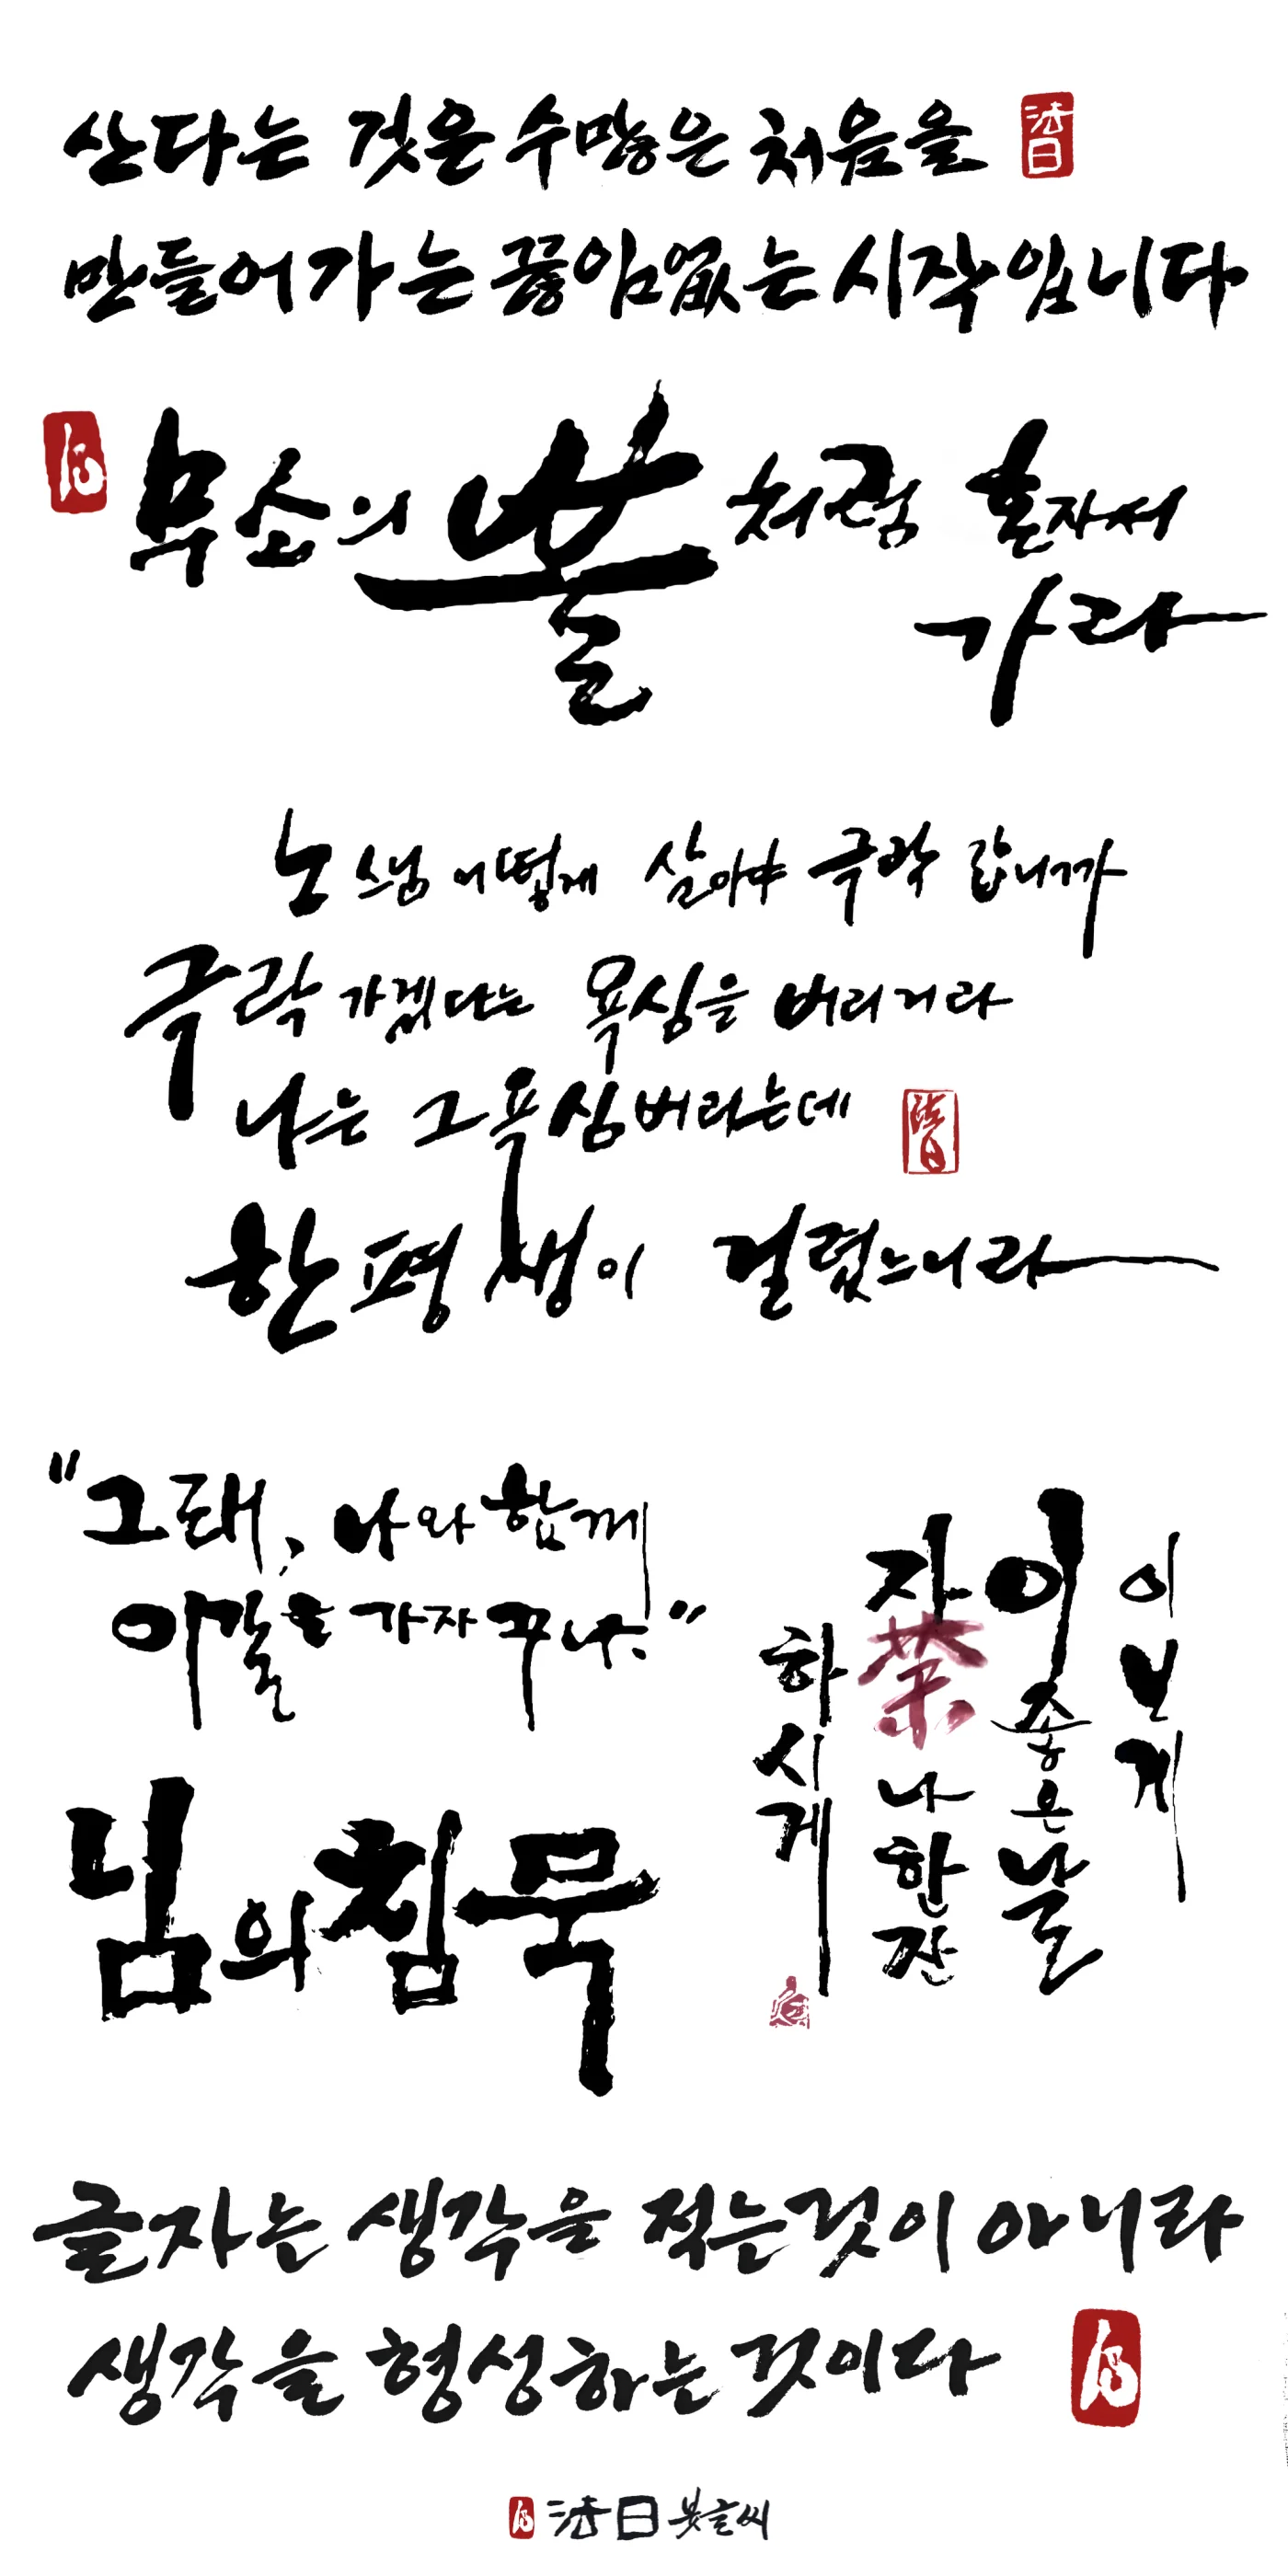 산다는 것은 수많은 처음을
法日
만들어가는 끊임없는 시작입니다
무소의 뿔처럼 혼자서
가라
노스님 어떻게 살아야 극락 갑니까
극락 가겠다는 욕심을 버리거라
나는 그 욕심 버리는데
法日
한평생이 걸렸느니라
"그래, 나와 함께
이 길을 가자꾸나."
이보게
이 좋은 날
자 茶나 한잔
하시게
님의 침묵
글자는 생각을 적는 것이 아니라
생각을 형성하는 것이다
法日 붓글씨